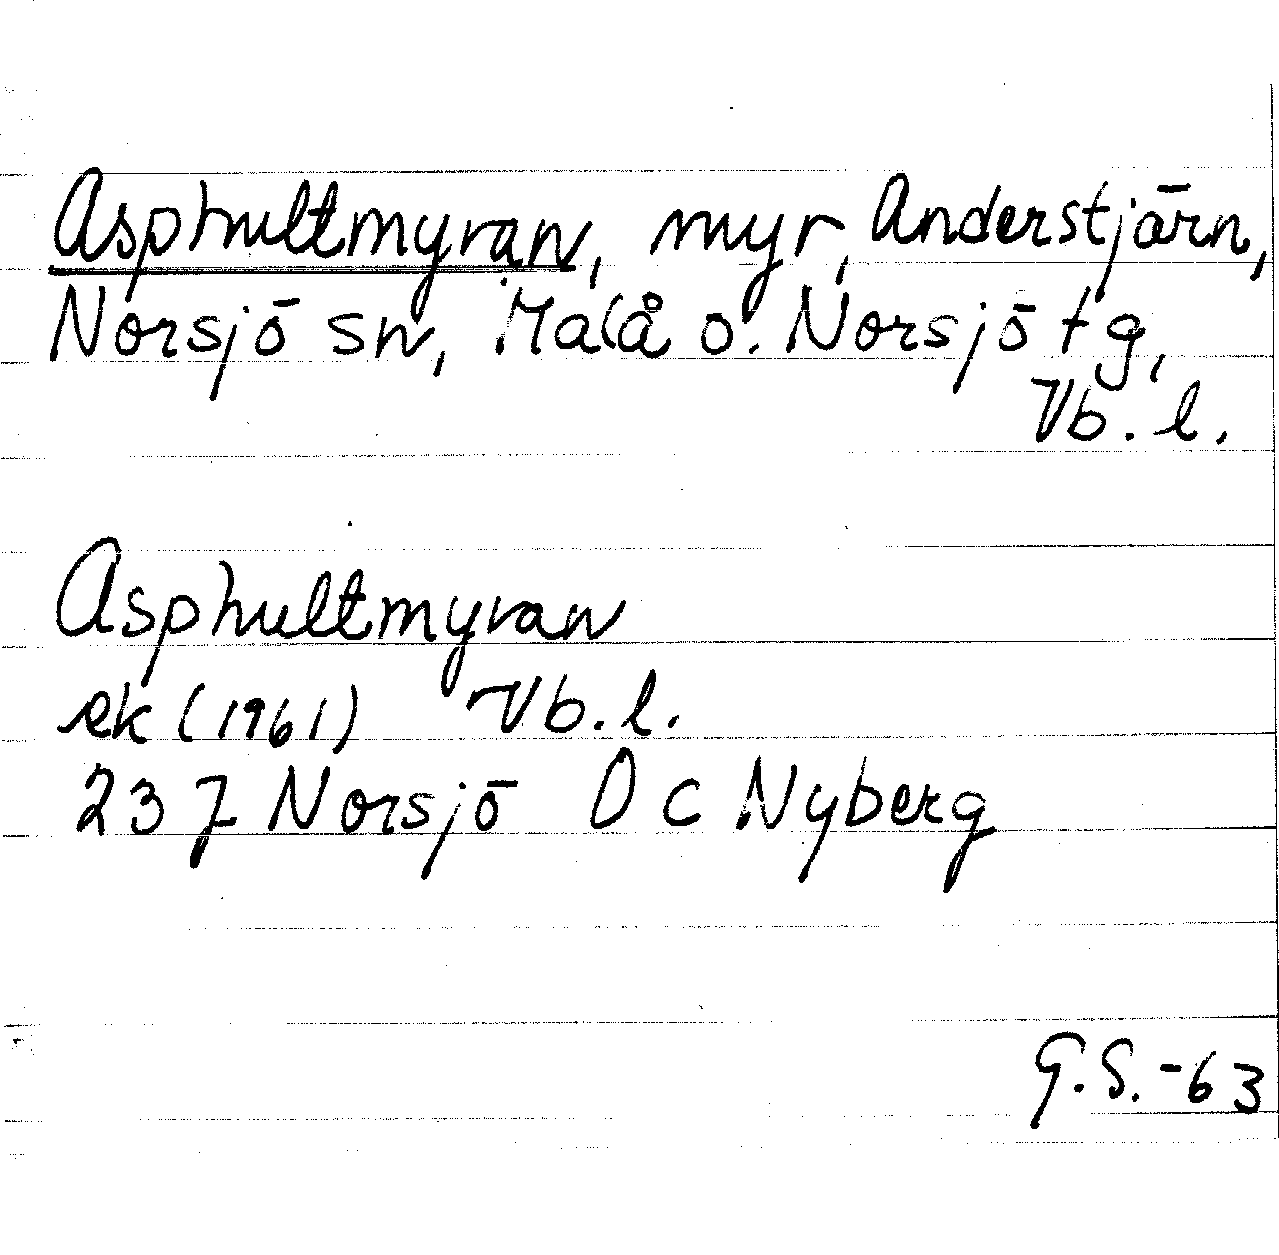 Asphultmyran, myr, Anderstjärn,
Norsjö sn, Malå o. Norsjö tg,
Vb. l.
Asphultmyran
ek (1961) Vb. l.
23 J Norsjö O C Nyberg
G.S.-63